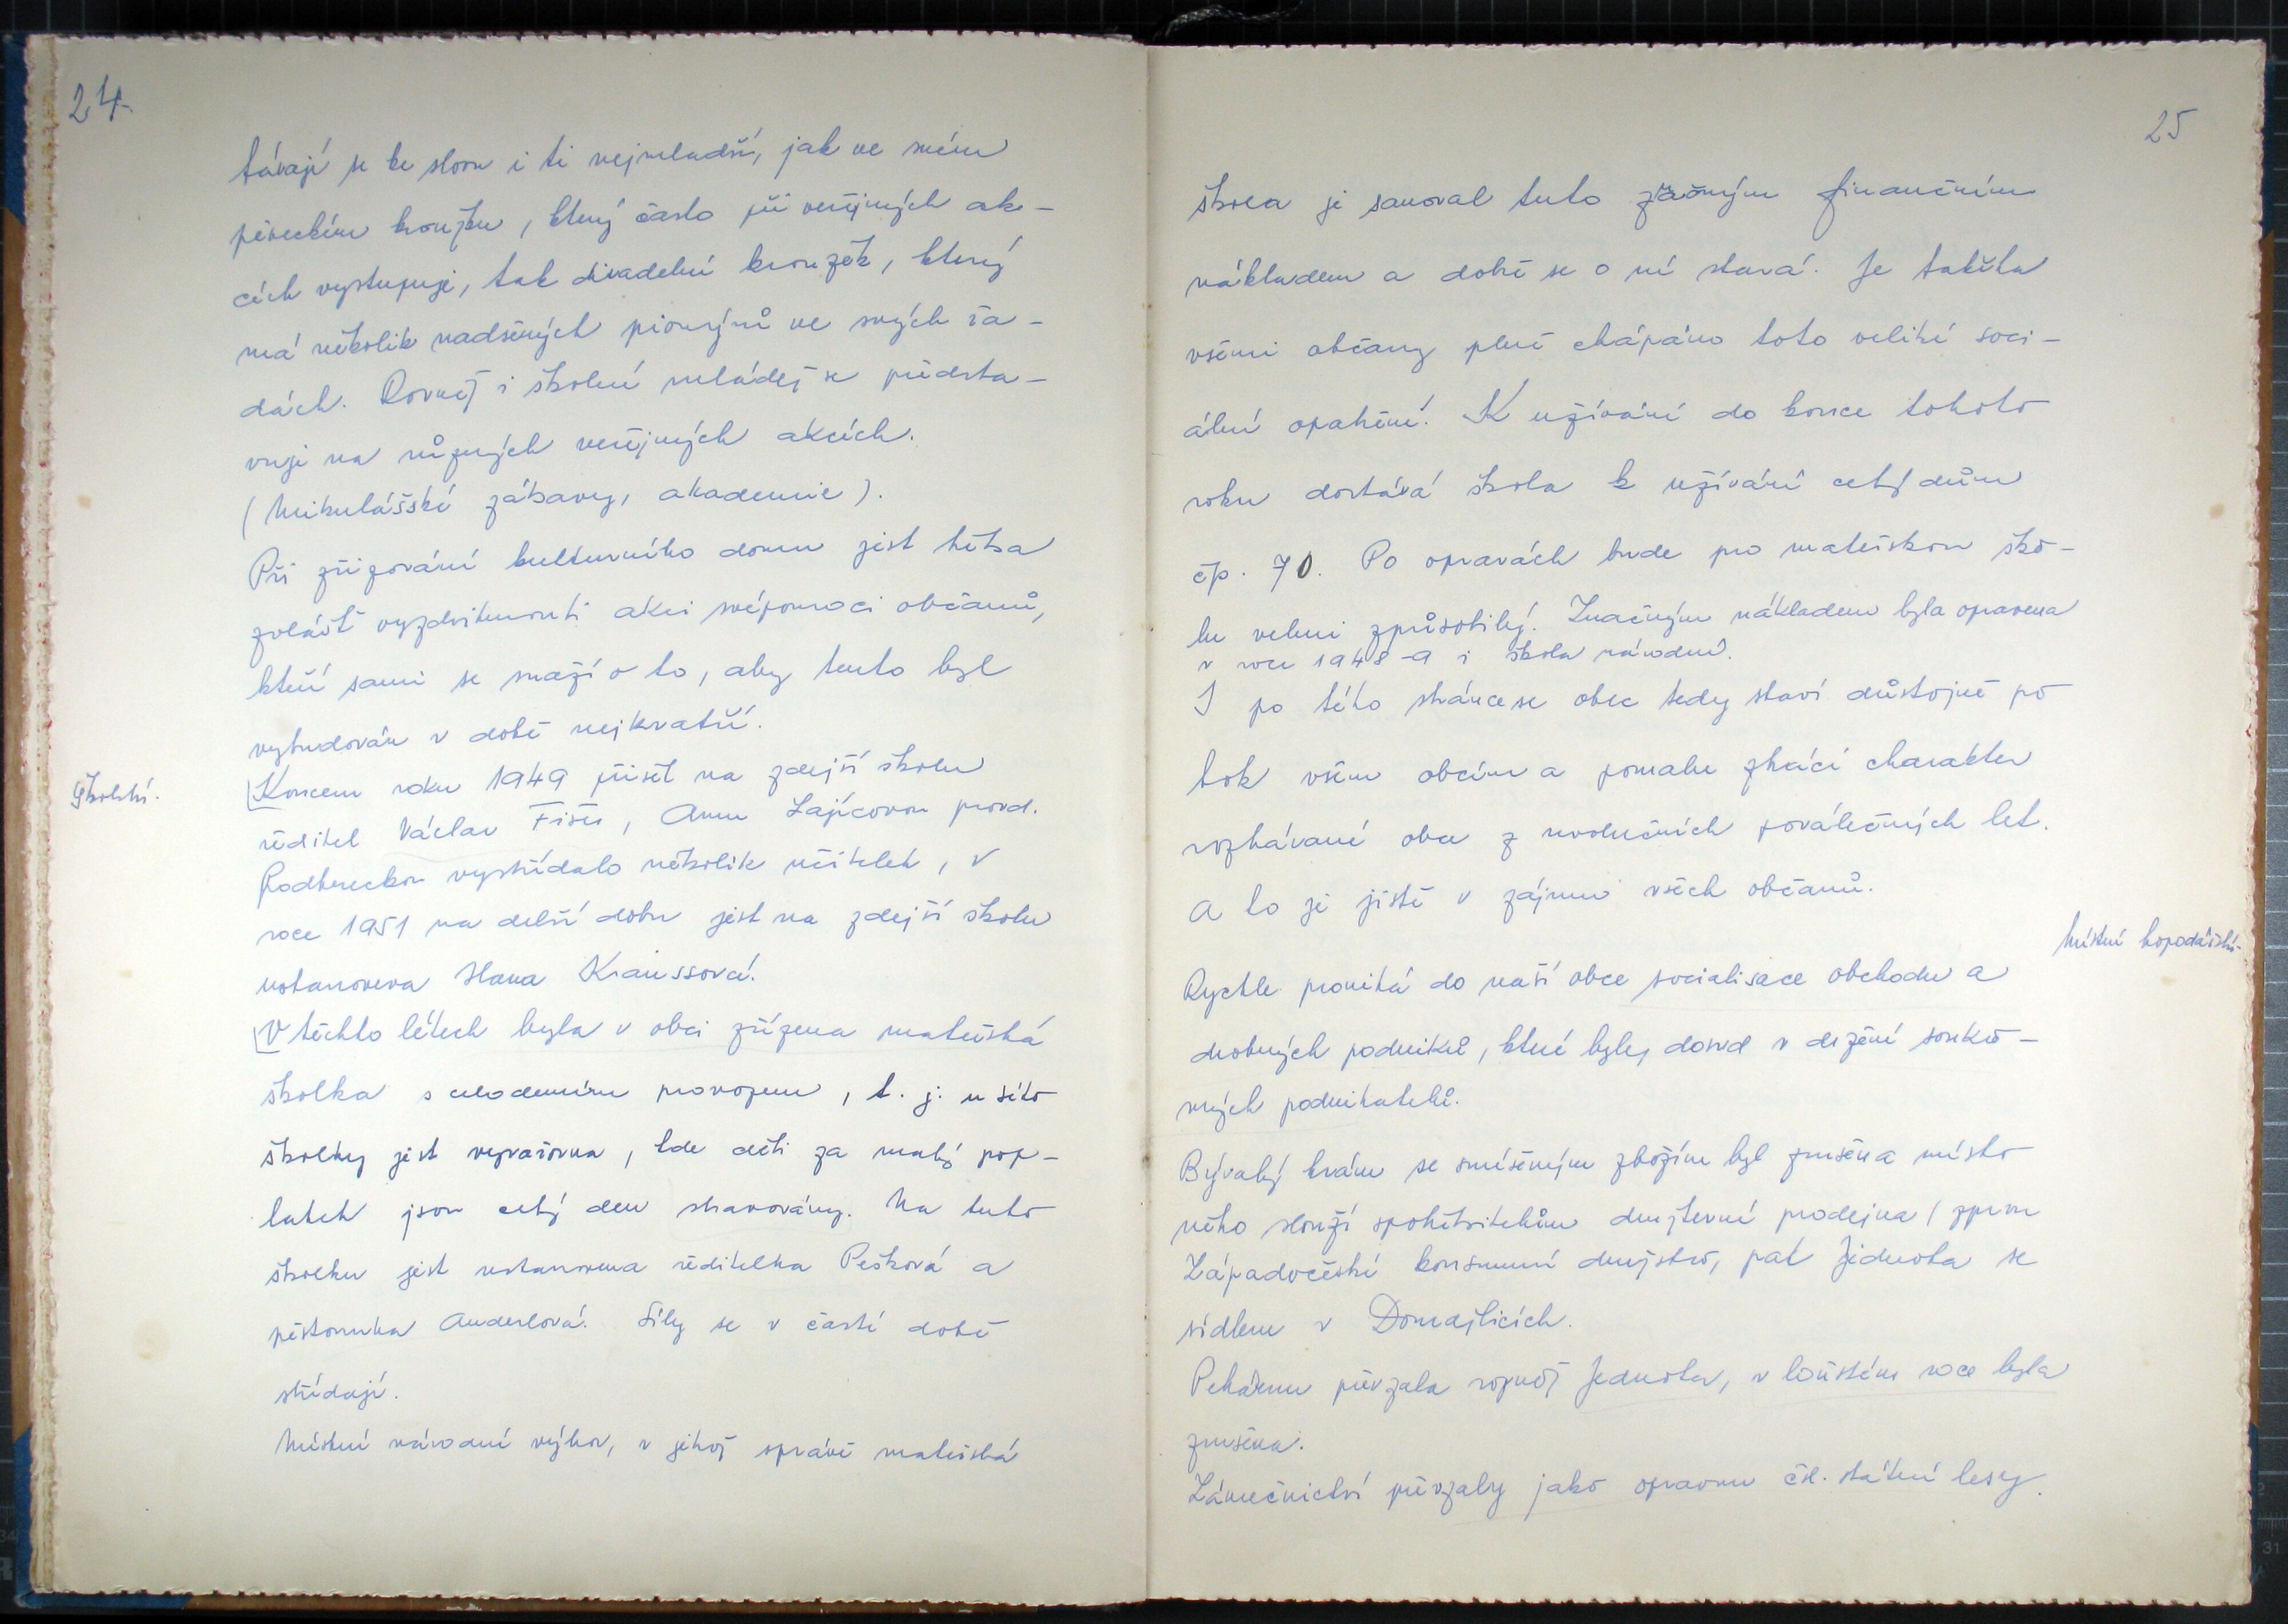 24.
távají se ke slovu i ti nejmladší, jak ve svém
pěveckém kroužku, který často při veřejných ak-
cích vystupuje, tak divadelní kroužek, který
má několik nadšených pionýrů ve svých řa-
dách. Rovněž i školní mládež se předsta-
vuje na různých veřejných akcích.
(Mikulášské zábavy, akademie).
Při zřizování kulturního domu jest třeba
zvlášť vyzdvihnouti akci svépomoci občanů,
kteří sami se snaží o to, aby tento byl
vybudován v době nejkratší.
Školství.
Koncem roku 1949 přišel na zdejší školu
ředitel Václav Fišer, Annu Lajícovou provd.
Podhreckou vystřídalo několik učitelek, v
roce 1951 na delší dobu jest na zdejší školu
ustanovena Hana Kraussová.
V těchto létech byla v obci zřízena mateřská
školka s celodenním provozem, t. j. u této
školky jest vyvařovna, kde děti za malý pop-
latek jsou celý den stravovány. Na tuto
školku jest ustanovena ředitelka Pešková a
pěstounka Anderlová. Síly se v časté době
střídají.
Místní národní výbor, v jehož správě mateřská
25
škola je sanoval tuto značným finančním
nákladem a dobře se o ní stará. Je takřka
všemi občany plně chápáno toto veliké soci-
ální opatření. K užívání do konce tohoto
roku dostává škola k užívání celý dům
čp. 70. Po opravách bude pro mateřskou ško-
lu velmi způsobilý. Značným nákladem byla opravena
v roce 1948-9 i škola národní.
I po této stránce se obec tedy staví důstojně po
bok všem obcím a pomalu ztrácí charakter
rozhávané obce z revolučních poválečných let.
A to je jistě v zájmu všech občanů.
Místní hospodářství.
Rychle proniká do naší obce socialisace obchodu a
drobných podniků, které byly dosud v držení soukro-
mých podnikatelů.
Bývalý krám se smíšeným zbožím byl zrušen a místo
něho slouží spotřebitelům družstevní prodejna (zprvu
Západočeské konsumní družstvo, pak Jednota se
sídlem v Domažlicích.
Pekárnu převzala rovněž Jednota, v loňském roce byla
zrušena.
Zámečnictví převzaly jako opravnu čsl. státní lesy.